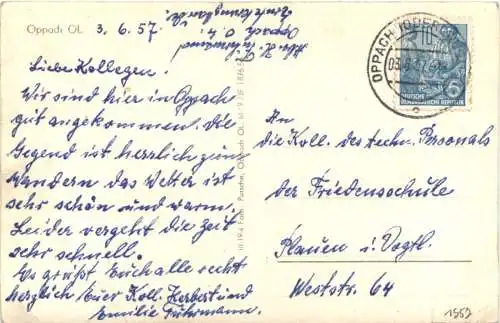 Oppach OL
3.6.57
Liebe Kollegen.
Wir sind hier in Oppach
gut angekommen. Die
Gegend ist herrlich zum
Wandern das Wetter ist
sehr schön und warm.
Leider vergeht die Zeit
sehr schnell.
Es grüßt Euch alle recht
herzlich Euer Koll. Herbert und
Emilie Fuhrmann.
Abs. H. Fuhrmann
Oppach O.L.
III 19 4 Foto Pursche, Oppach OL
OPPACH
10
DEUTSCHE
DEMOKRATISCHE REPUBLIK
An
die Koll. des techn. Personals
der Friedensschule
Plauen i. Vogtl.
Weststr. 64
1957